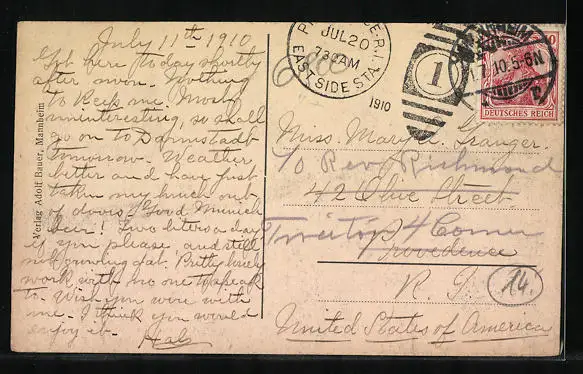 July 11th 1910
Got here today shortly
after noon. Nothing
to keep me. Mostly
uninteresting, so shall
go on to Darmstadt
tomorrow. Weather
better and have just
taken my lunch out
of doors. Good Munich
beer! Two liters a day
if you please and still
not growing fat. Pretty lonely
work with no one to speak
to. Wish you were with
me. I think you would
enjoy it.
Hal
Verlag Adolf Bauer, Mannheim
JUL 20
730AM
EAST SIDE STA.
1910
1
10
DEUTSCHES REICH
10.5-6N
Miss Mary A. Granger.
c/o Rev. Richmond
42 Olive Street.
Tiverton 4 Corner
Providence
R. I.
14.
United States of America